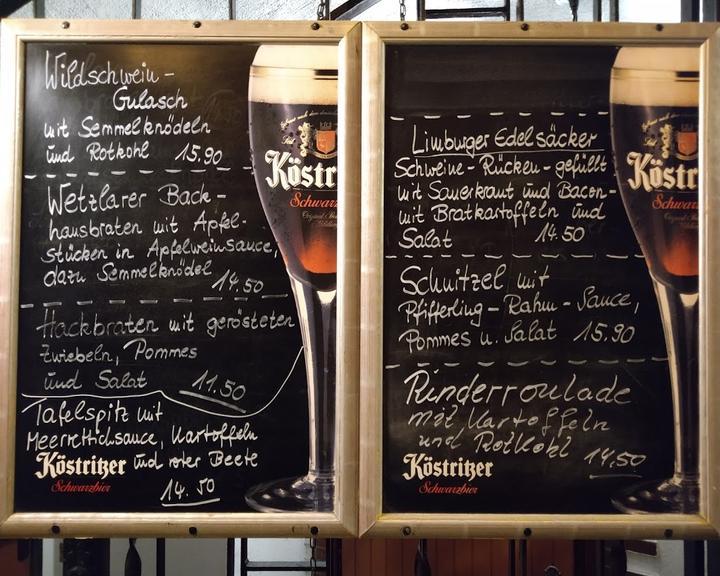 Wildschwein-
Gulasch
mit Semmelknödeln
und Rotkohl 15,90
Wetzlarer Back-
hausbraten mit Apfel-
stücken in Apfelweinsauce,
dazu Semmelknödel
14,50
Hackbraten mit gerösteten
Zwiebeln, Pommes
und Salat 11.50
Tafelspitz mit
Meerrettichsauce, Kartoffeln
und roter Beete
14.50
Köstritzer
Schwarzbier
Köstr
Schwarz
Limburger Edelsäcker
Schweine-Rücken-gefüllt
mit Sauerkraut und Bacon-
mit Bratkartoffeln und
Salat 14.50
Schnitzel mit
Pfifferling-Rahm-Sauce,
Pommes u. Salat 15.90
Rinderroulade
mit Kartoffeln
und Rotkohl
14,50
Köstritzer
Schwarzbier
Köstr
Schwarz